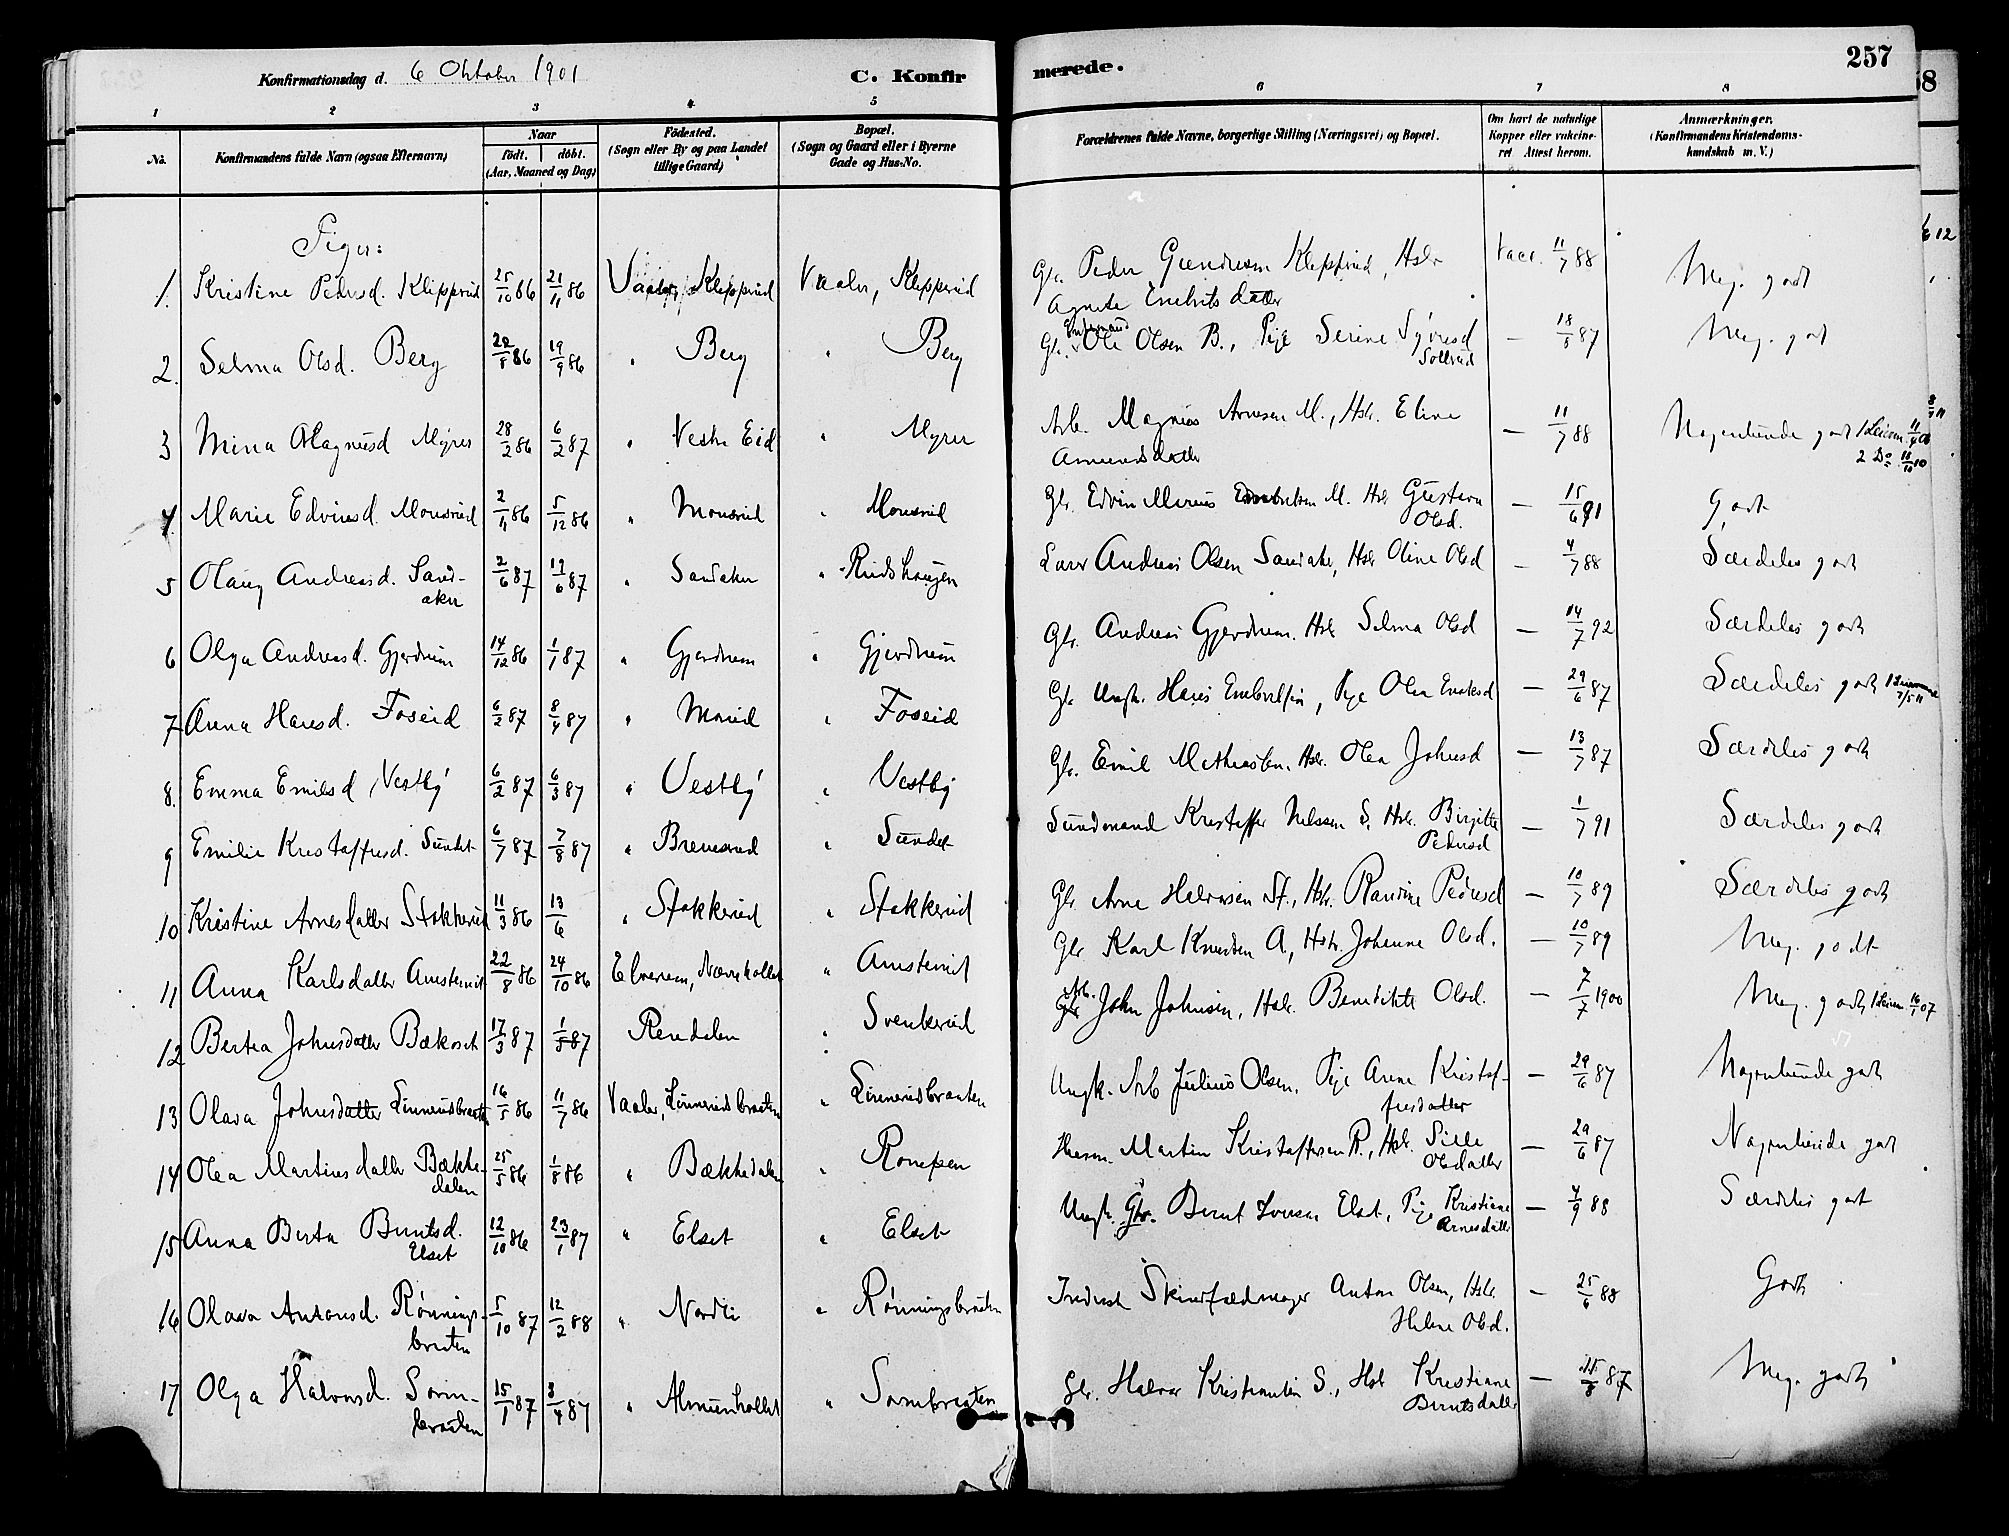 257
Konfirmationsdag d. 6 Oktober 1901 C. Konfirmerede.
1 2 3 4 5 6 7 8
No. Konfirmandens fulde Navn (ogsaa Efternavn) Naar födt. döbt. (Aar, Maaned og Dag) Födested. (Sogn eller By og paa Landet tillige Gaard) Bopæl. (Sogn og Gaard eller i Byerne Gade og Hus-No. Forældrenes fulde Navne, borgerlige Stilling (Næringsvei) og Bopæl. Om havt de naturlige Kopper eller vakcineret. Attest herom. Anmærkninger. (Konfirmandens Kristendomskundskab m. V.)
Piger:
1. Kristine Pedersd. Klepperud 25/10 86 21/11 86 Vaaler, Klepperud Vaaler, Klepperud Gbr. Peder Gundersen Klepperud, Hstr Vacc. 11/7 88 Meg. godt
Agnete Embritsdatter
2. Selma Olsd. Berg 22/8 86 19/9 86 " Berg " Berg Gbr. Enkemand Ole Olsen B., Pige Serine Syversd — 18/8 87 Meg. godt
Sollerud
3 Mina Magnusd Myrer 28/2 86 6/2 87 " Vestre Eid " Myrer Arb. Magnus Arnesen M., Hstr. Eline — 11/7 88 Nogenlunde godt
Amundsdatter
4. Marie Edvinsd. Monsrud 2/11 86 5/12 86 " Monsrud " Monsrud Gbr. Edvin Marius Embretsen M. Hstr Gustava — 15/6 91 Godt
Olsd.
5 Olaug Andreasd. Sand- 2/6 87 17/6 87 " Sandaker " Rudshaugen Andreas Olsen Sandaker, Hstr Oline Olsd — 4/7 88 Særdeles godt
aker
6 Olga Andreasd. Gjerdrum 14/12 86 1/1 87 " Gjerdrum " Gjerdrum Gbr. Andreas Gjerdrum. Hstr Selma Olsd — 14/7 92 Særdeles godt
7 Anna Hansd. Foseid 6/2 87 8/4 87 " Morud " Foseid Gbr. Ungk. Hans Embretsen, Pige Olea — 29/6 87 Særdeles godt
8. Emma Emilsd Vestby 6/2 87 6/3 87 " Vestby " Vestby Gbr. Emil Mathiasen, Hstr. Olea Johnsd — 13/7 87 Særdeles godt
9 Emilie Kristoffersd. Sundet 6/7 87 7/8 87 " Brenesrud " Sundet Sundmand Kristoffer Nelssen S, Hstr. Birgitte — 1/7 91 Særdeles godt
Pedersd
10 Kristine Arnesdatter Stokkerud 11/3 86 13/6 " Stokkerud " Stokkerud Gbr. Arne Halvorsen St., Hstr. Randine Pedersd — 10/7 89 Særdeles godt
11 Anna Karlsdatter 22/8 86 24/10 86 Elverum, Gbr. Karl Knudsen A, Hstr. Johanne Olsd. — 10/7 89 Meg. godt
12 Bertea Johnsdatter Bækoset 17/3 87 1/5 87 Rendalen " Svenkerud Arb. John Johnsen, Hstr. Benedikte Olsd. — 7/7 1900 Meg. godt
13 Olava Johnsdatter Linnerudbraaten 16/5 86 11/7 86 Vaaler, Linnerudsbraaten " Linnerudbraaten Ungk. Arb Julius Olsen, Pige Anne Kristof- — 29/6 87 Nogenlunde godt
fersdatter
14 Olea Martinsdatter Bække- 25/5 86 1/8 86 " Bækkedalen " Husm. Martin Kristoffersen R., Hstr. Sille — 29/6 87 Nogenlunde godt
dalen Olsdatter
15 Anna Berta Berntsd. 12/10 86 23/1 87 " Elset " Elset Ungk. Gbr. Bernt Iversen Elset, Pige Kristiane — 4/9 88 Særdeles godt
Elset Arnesdatter
16 Olava Antonsd. Rønnings- 5/10 87 12/2 88 " Nordli " Rønningsbraaten Inderst Skindfældmager Anton Olsen, Hstr. — 25/6 88 Godt
braaten Helene Olsd.
17 Olga Halvorsd. Sorm- 15/1 87 3/4 87 " " Sormbraaten Gbr. Halvor Kristiansen S., Hstr Kristiane — 15/8 87 Meg. godt
braaten Berntsdatter